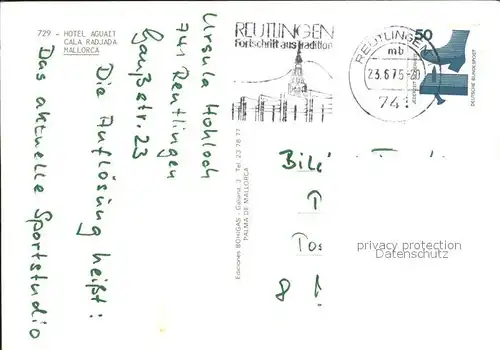 729 - HOTEL AGUAIT
CALA RADJADA
MALLORCA
Ursula Hohloch
741 Reutlingen
Gaußstr. 23
Die Auflösung heißt:
Das aktuelle Sportstudio
Ediciones BOHIGAS - Galiana, 3 Tel. 23 78 77
PALMA DE MALLORCA
REUTLINGEN
Fortschritt aus Tradition
REUTLINGEN
mb
23.6.75-20
741
50
DEUTSCHE BUNDESPOST
8
privacy protection
Datenschutz